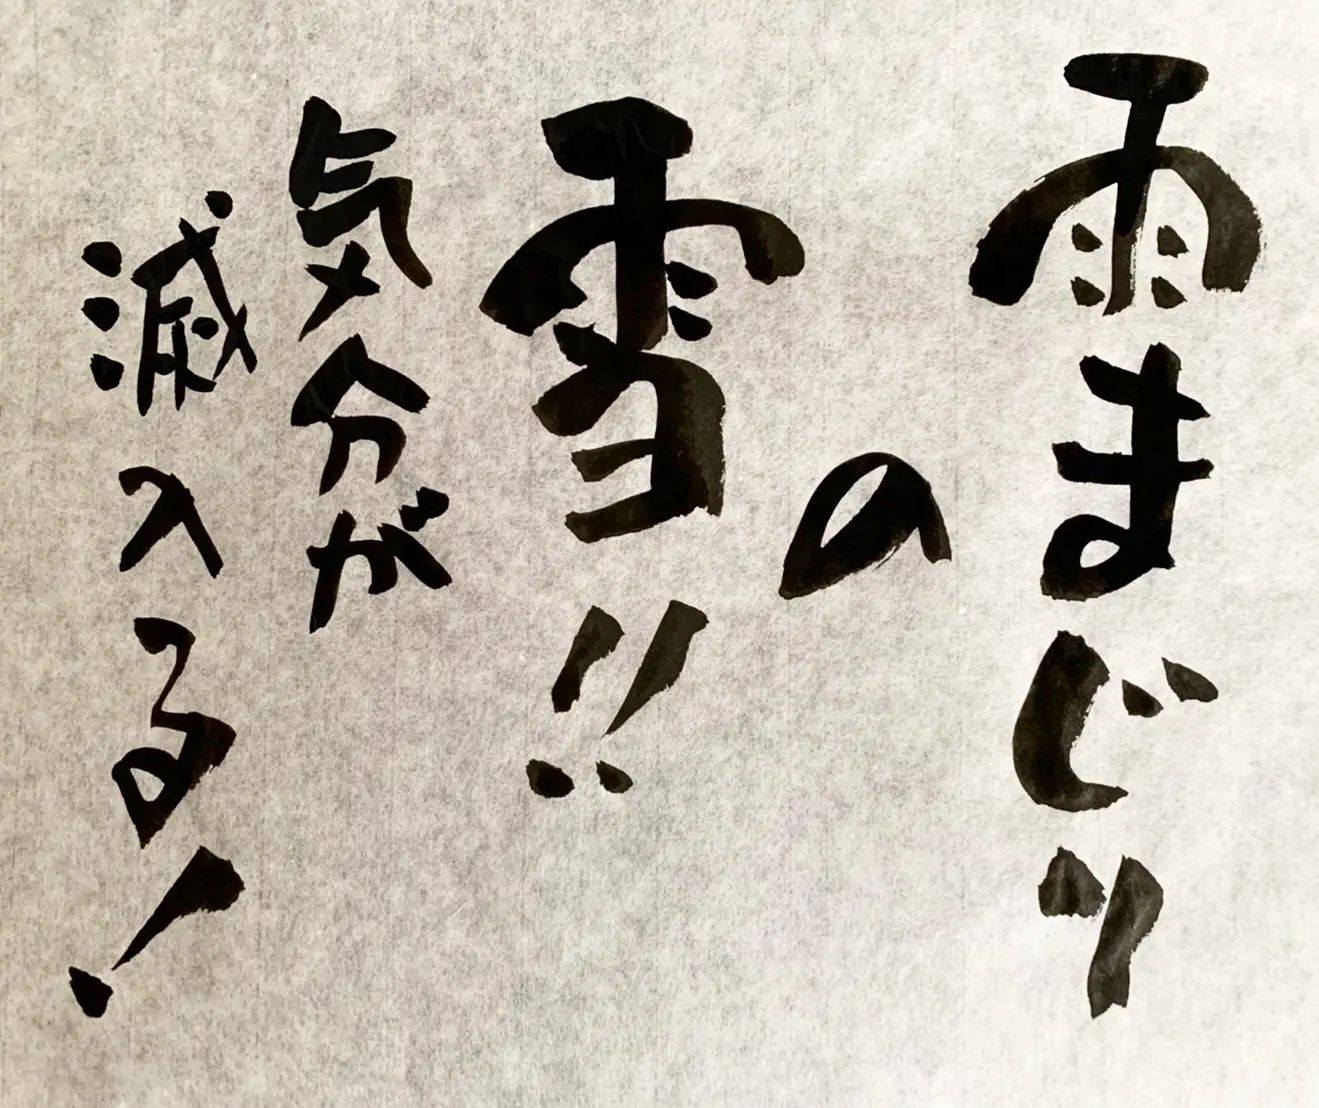 雨まじり
の
雪!!
気分が
滅入る!